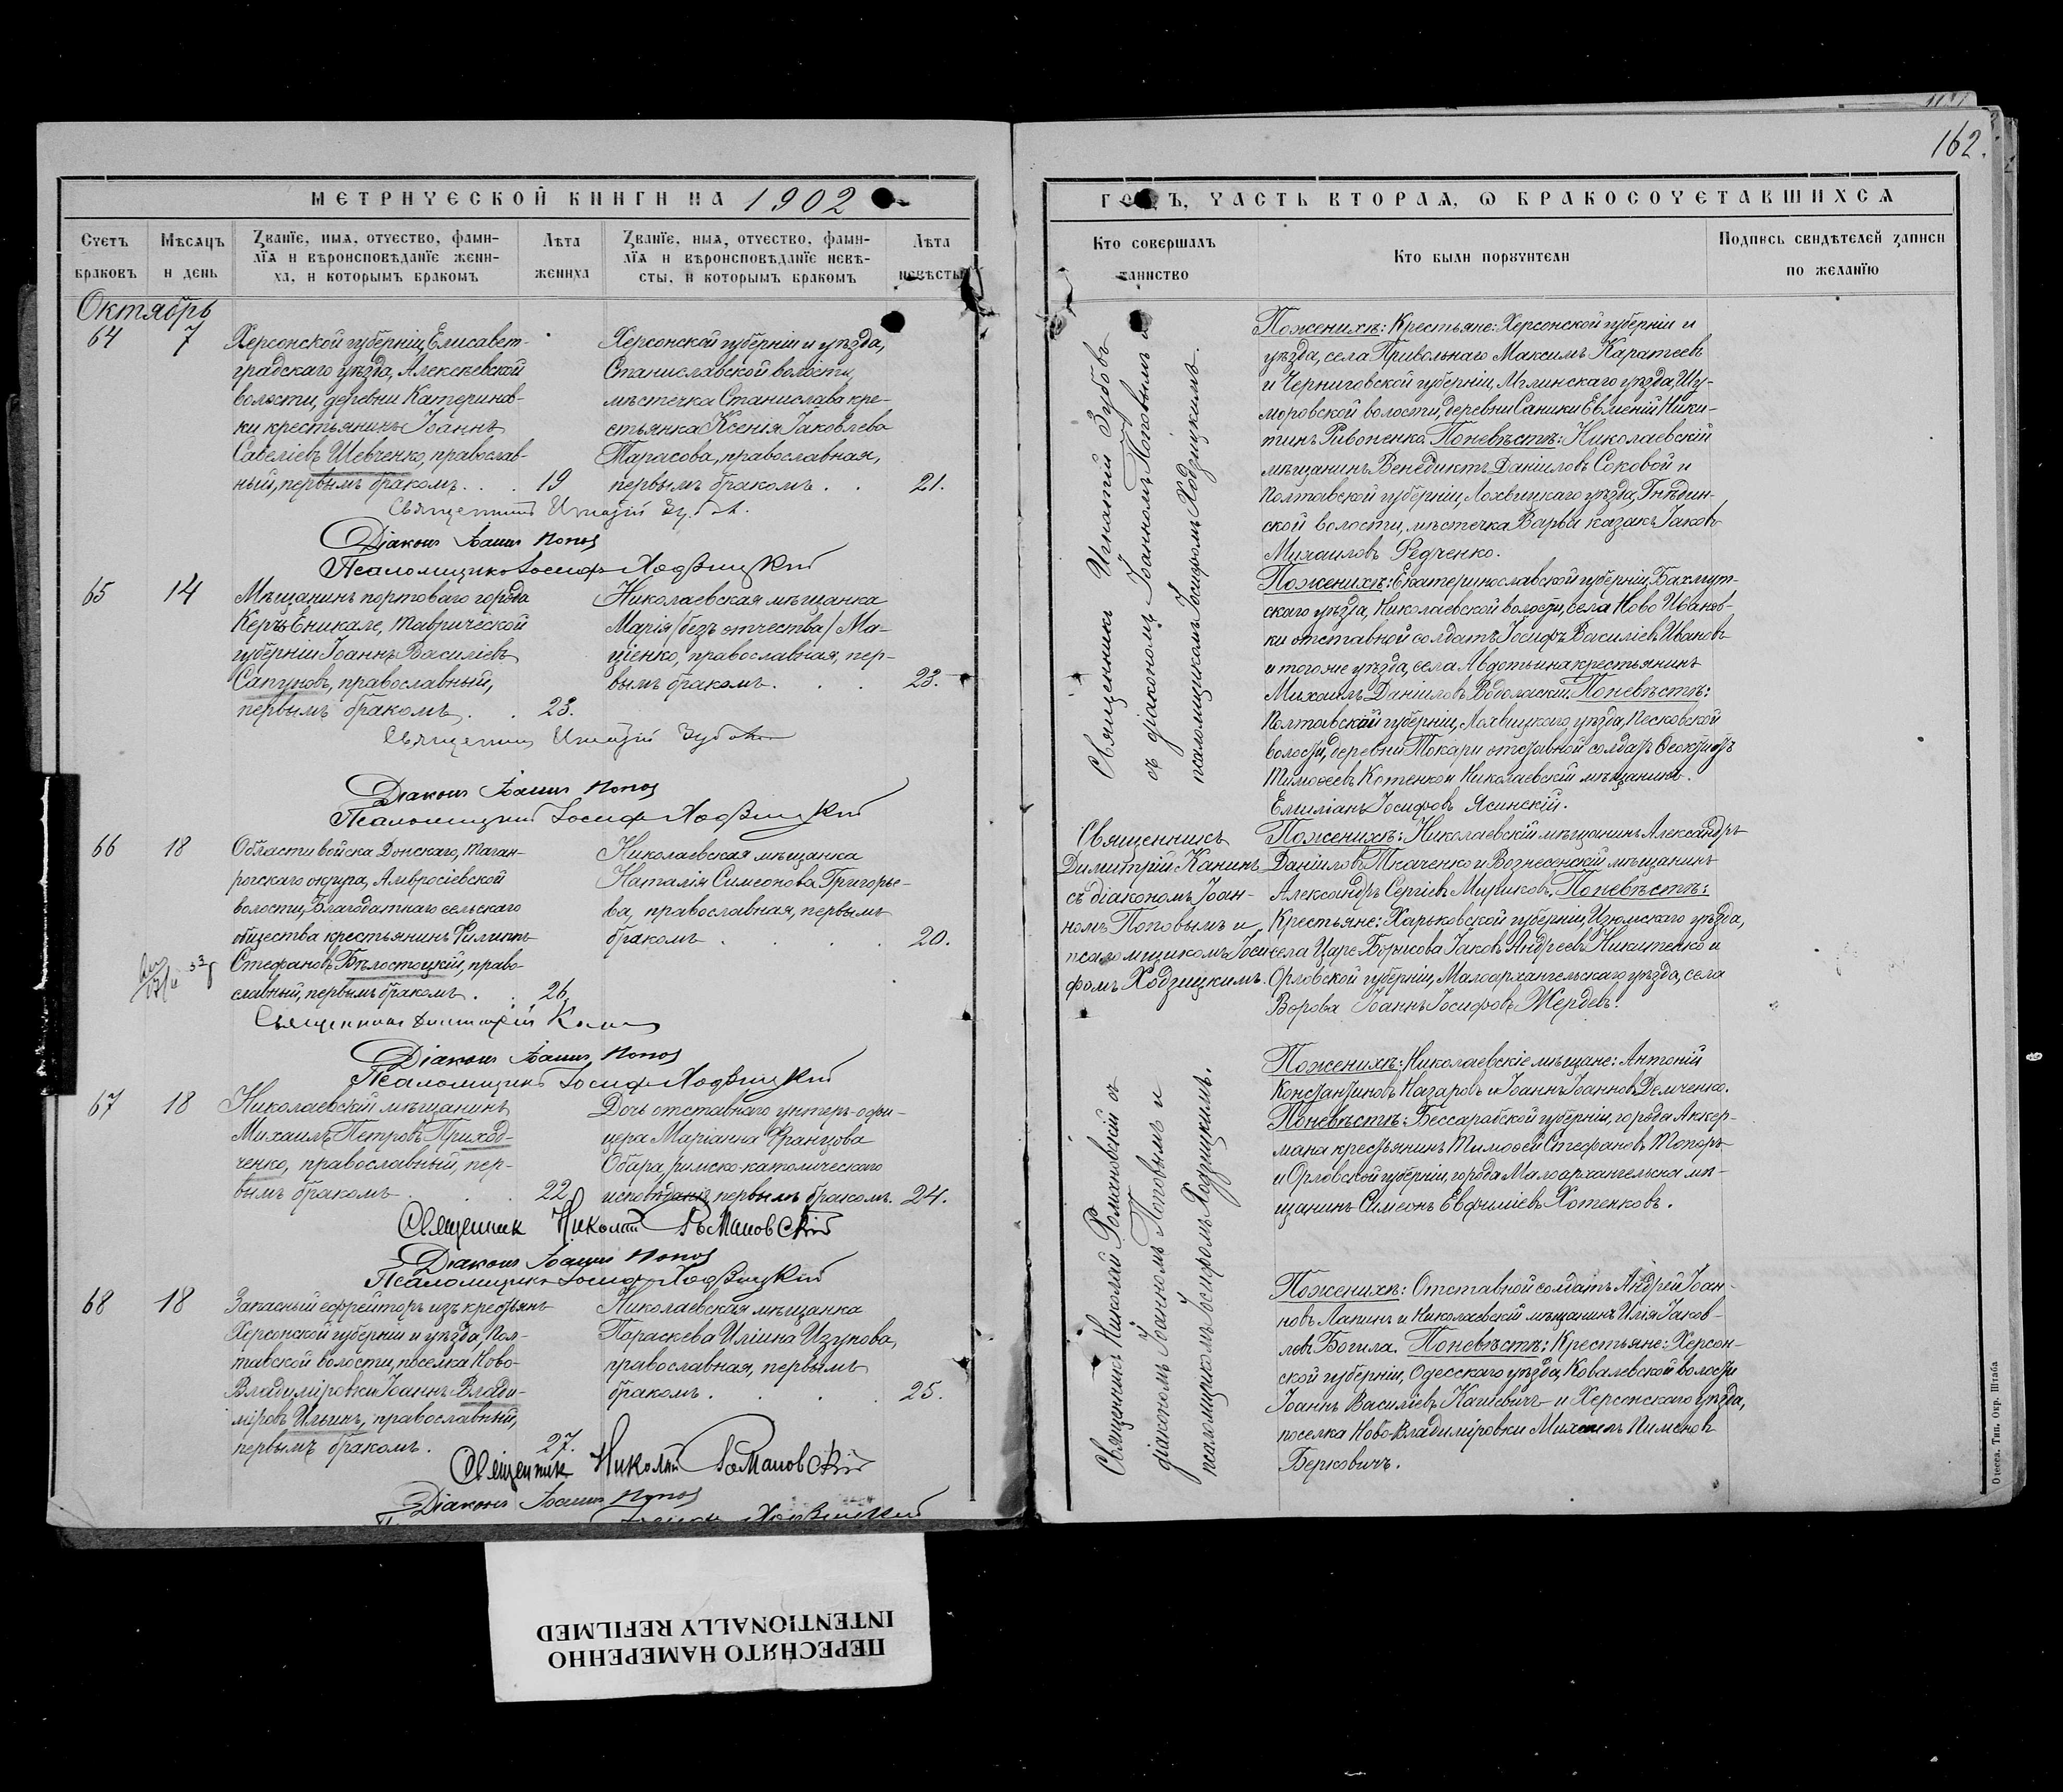 162.
МЕТРИЧЕСКОЙ КНИГИ НА 1902
ГОДЪ, ЧАСТЬ ВТОРАЯ, Ѡ БРАКОСОЧЕТАВШИХСЯ
Счетъ браковъ
Мѣсяцъ и день
Званїе, имя, отчество, фами-
лїя и вѣроисповѣданїе жени-
ха, и которымъ бракомъ
Лѣта жениха
Званїе, имя, отчество, фами-
лїя и вѣроисповѣданїе невѣ-
сты, и которымъ бракомъ
Лѣта невѣсты
Кто совершалъ таинство
Кто были поручители
Подпись свидѣтелей записи
по желанїю
Октябрь
64 7
Херсонской губерніи, Елисавет-
градскаго уѣзда, Алексѣевской
волости, деревни Катеринов-
ки крестьянинъ Іоаннъ
Савеліевъ Шевченко, православ-
ный, первымъ бракомъ. . . 19
Херсонской губерніи и уѣзда,
Станиславской волости,
мѣстечка Станислава кре-
стьянка Ксенія Іаковлева
Тарасова, православная,
первымъ бракомъ. . 21.
Священникъ Игнатій Зубовъ
Діаконъ Іоаннъ Поповъ
Псаломщикъ Іосифъ Ходзицкій
65 14
Мѣщанинъ портоваго города
Керчь Еникале, Таврической
губерніи Іоаннъ Василіевъ
Сапуновъ, православный,
первымъ бракомъ. . 23.
Николаевская мѣщанка
Марія /безъ отчества/ Ма-
ціенко, православная, пер-
вымъ бракомъ. . . 23.
Священникъ Игнатій Зубовъ
Діаконъ Іоаннъ Поповъ
Псаломщикъ Іосифъ Ходзицкій
66 18
Области войска Донскаго, Таган-
рогскаго округа, Амвросіевской
волости, Благодатнаго сельскаго
общества крестьянинъ Филиппъ
Стефановъ Бѣлостоцкій, право-
славный, первымъ бракомъ. . 26.
Николаевская мѣщанка
Наталія Симеонова Григорье-
ва, православная, первымъ
бракомъ . . . . 20.
Священникъ Димитрій Канинъ
Діаконъ Іоаннъ Поповъ
Псаломщикъ Іосифъ Ходзицкій
67 18
Николаевскій мѣщанинъ
Михаилъ Петровъ Приход-
ченко, православный, пер-
вымъ бракомъ . . . 22
Дочь отставнаго унтеръ-офи-
цера Маріанна Францова
Обара, римско-католическаго
исповѣданія, первымъ бракомъ. 24.
Священник Николай Романовскій
Діаконъ Іоаннъ Поповъ
Псаломщикъ Іосифъ Ходзицкій
68 18
Запасный ефрейторъ изъ крестьянъ
Херсонской губерніи и уѣзда, Пол-
тавской волости, поселка Ново-
Владиміровки Іоаннъ Влади-
міровъ Ильинъ, православный,
первымъ бракомъ. 27.
Николаевская мѣщанка
Параскева Иліина Изукова,
православная, первымъ
бракомъ. . . . 25.
Священник Николай Романовскій
Діаконъ Іоаннъ Поповъ
Іосифъ Ходзицкій
Священникъ Игнатій Зубовъ
съ діакономъ Іоанномъ Поповымъ и
псаломщикомъ Іосифомъ Ходзицкимъ.
По женихѣ: Крестьяне: Херсонской губерніи и
уѣзда, села Привольнаго Максимъ Каратеевъ
и Черниговской губерніи, Мглинскаго уѣзда, Шу-
моровской волости, деревни Саники Евменій Ники-
тинъ Ривоненко. По невѣстѣ: Николаевскій
мѣщанинъ Венедиктъ Даніиловъ Соковой и
Полтавской губерніи, Лохвицкаго уѣзда, Гнѣдин-
ской волости, мѣстечка Варвы казакъ Іаковъ
Михаиловъ Федченко.
По женихѣ: Екатеринославской губерніи, Бахмут-
скаго уѣзда, Николаевской волости, села Ново Иванов-
ки отставной солдатъ Іосифъ Василіевъ Ивановъ
и того же уѣзда, села Авдотьина крестьянинъ
Михаилъ Даніиловъ. По невѣстѣ:
Полтавской губерніи, Лохвицкаго уѣзда, Песковской
волости, деревни Токари отставной солдатъ Ѳеоктистъ
Тимоѳеевъ Котенко и Николаевскій мѣщанинъ
Емиліанъ Іосифовъ Ясинскій.
Священникъ
Димитрій Канинъ
съ діакономъ Іоан-
номъ Поповымъ и
псаломщикомъ Іоси-
фомъ Ходзицкимъ.
По женихѣ: Николаевскій мѣщанинъ Александръ
Даніиловъ Ткаченко и Вознесенскій мѣщанинъ
Александръ Сергіевъ Мушковъ. По невѣстѣ:
Крестьяне: Харьковской губерніи, Изюмскаго уѣзда,
села Царе-Борисова Іаковъ Андреевъ Никитенко и
Орловской губерніи, Малоархангельскаго уѣзда, села
Ворова Іоаннъ Іосифовъ Жердевъ.
Священникъ Николай Романовскій съ
діакономъ Іоанномъ Поповымъ и
псаломщикомъ Іосифомъ Ходзицкимъ.
По женихѣ: Николаевскіе мѣщане: Антоній
Константиновъ Назаровъ и Іоаннъ Іоанновъ Демченко.
По невѣстѣ: Бессарабской губерніи, города Аккер-
мана крестьянинъ Тимоѳей Стефановъ Топоръ
и Орловской губерніи, города Малоархангельска мѣ-
щанинъ Симеонъ Евфиміевъ Хотенковъ.
По женихѣ: Отставной солдатъ Андрей Іоан-
новъ Лапинъ и Николаевскій мѣщанинъ Илія Іаков-
левъ Богила. По невѣстѣ: Крестьяне: Херсон-
ской губерніи, Одесскаго уѣзда, Ковалевской волости
Іоаннъ Василіевъ Кашевичъ и Херсонскаго уѣзда,
поселка Ново-Владиміровки Михаилъ Пименовъ
Берковичъ.
Одесса. Тип. Окр. Штаба
ПЕРЕСНЯТО НАМЕРЕННО
INTENTIONALLY REFILMED